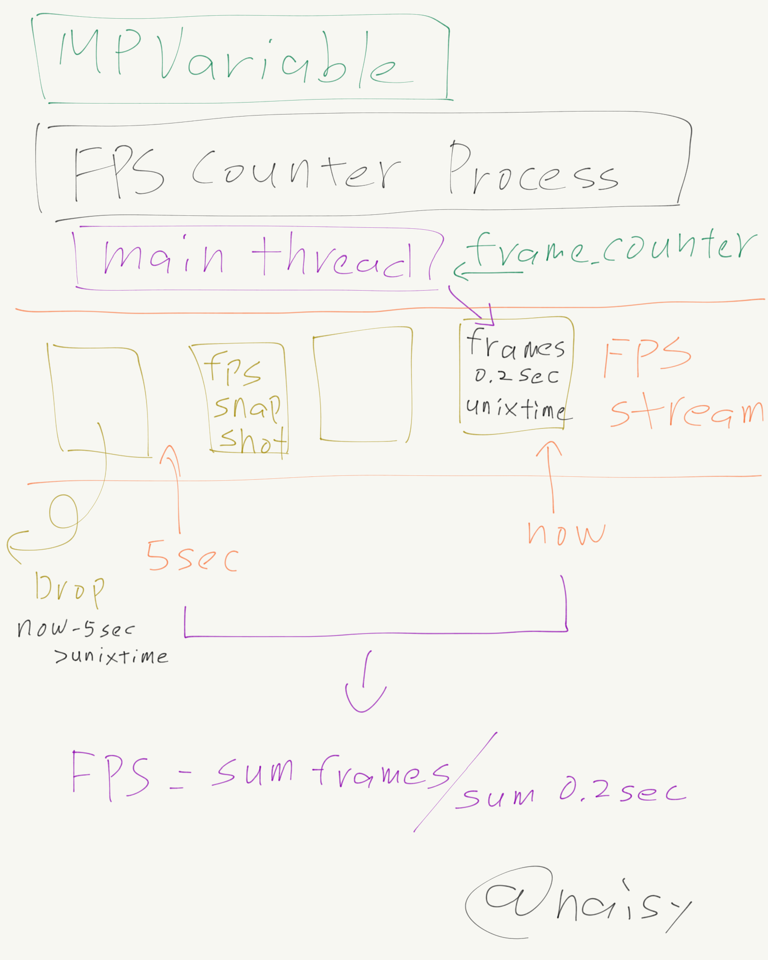 MPVariable
FPS Counter Process
main thread
frame_counter
frames
0.2sec
unixtime
FPS
stream
fps
snap
shot
5sec
now
Drop
now-5sec
>unixtime
FPS = sum frames/sum 0.2sec
@naisy